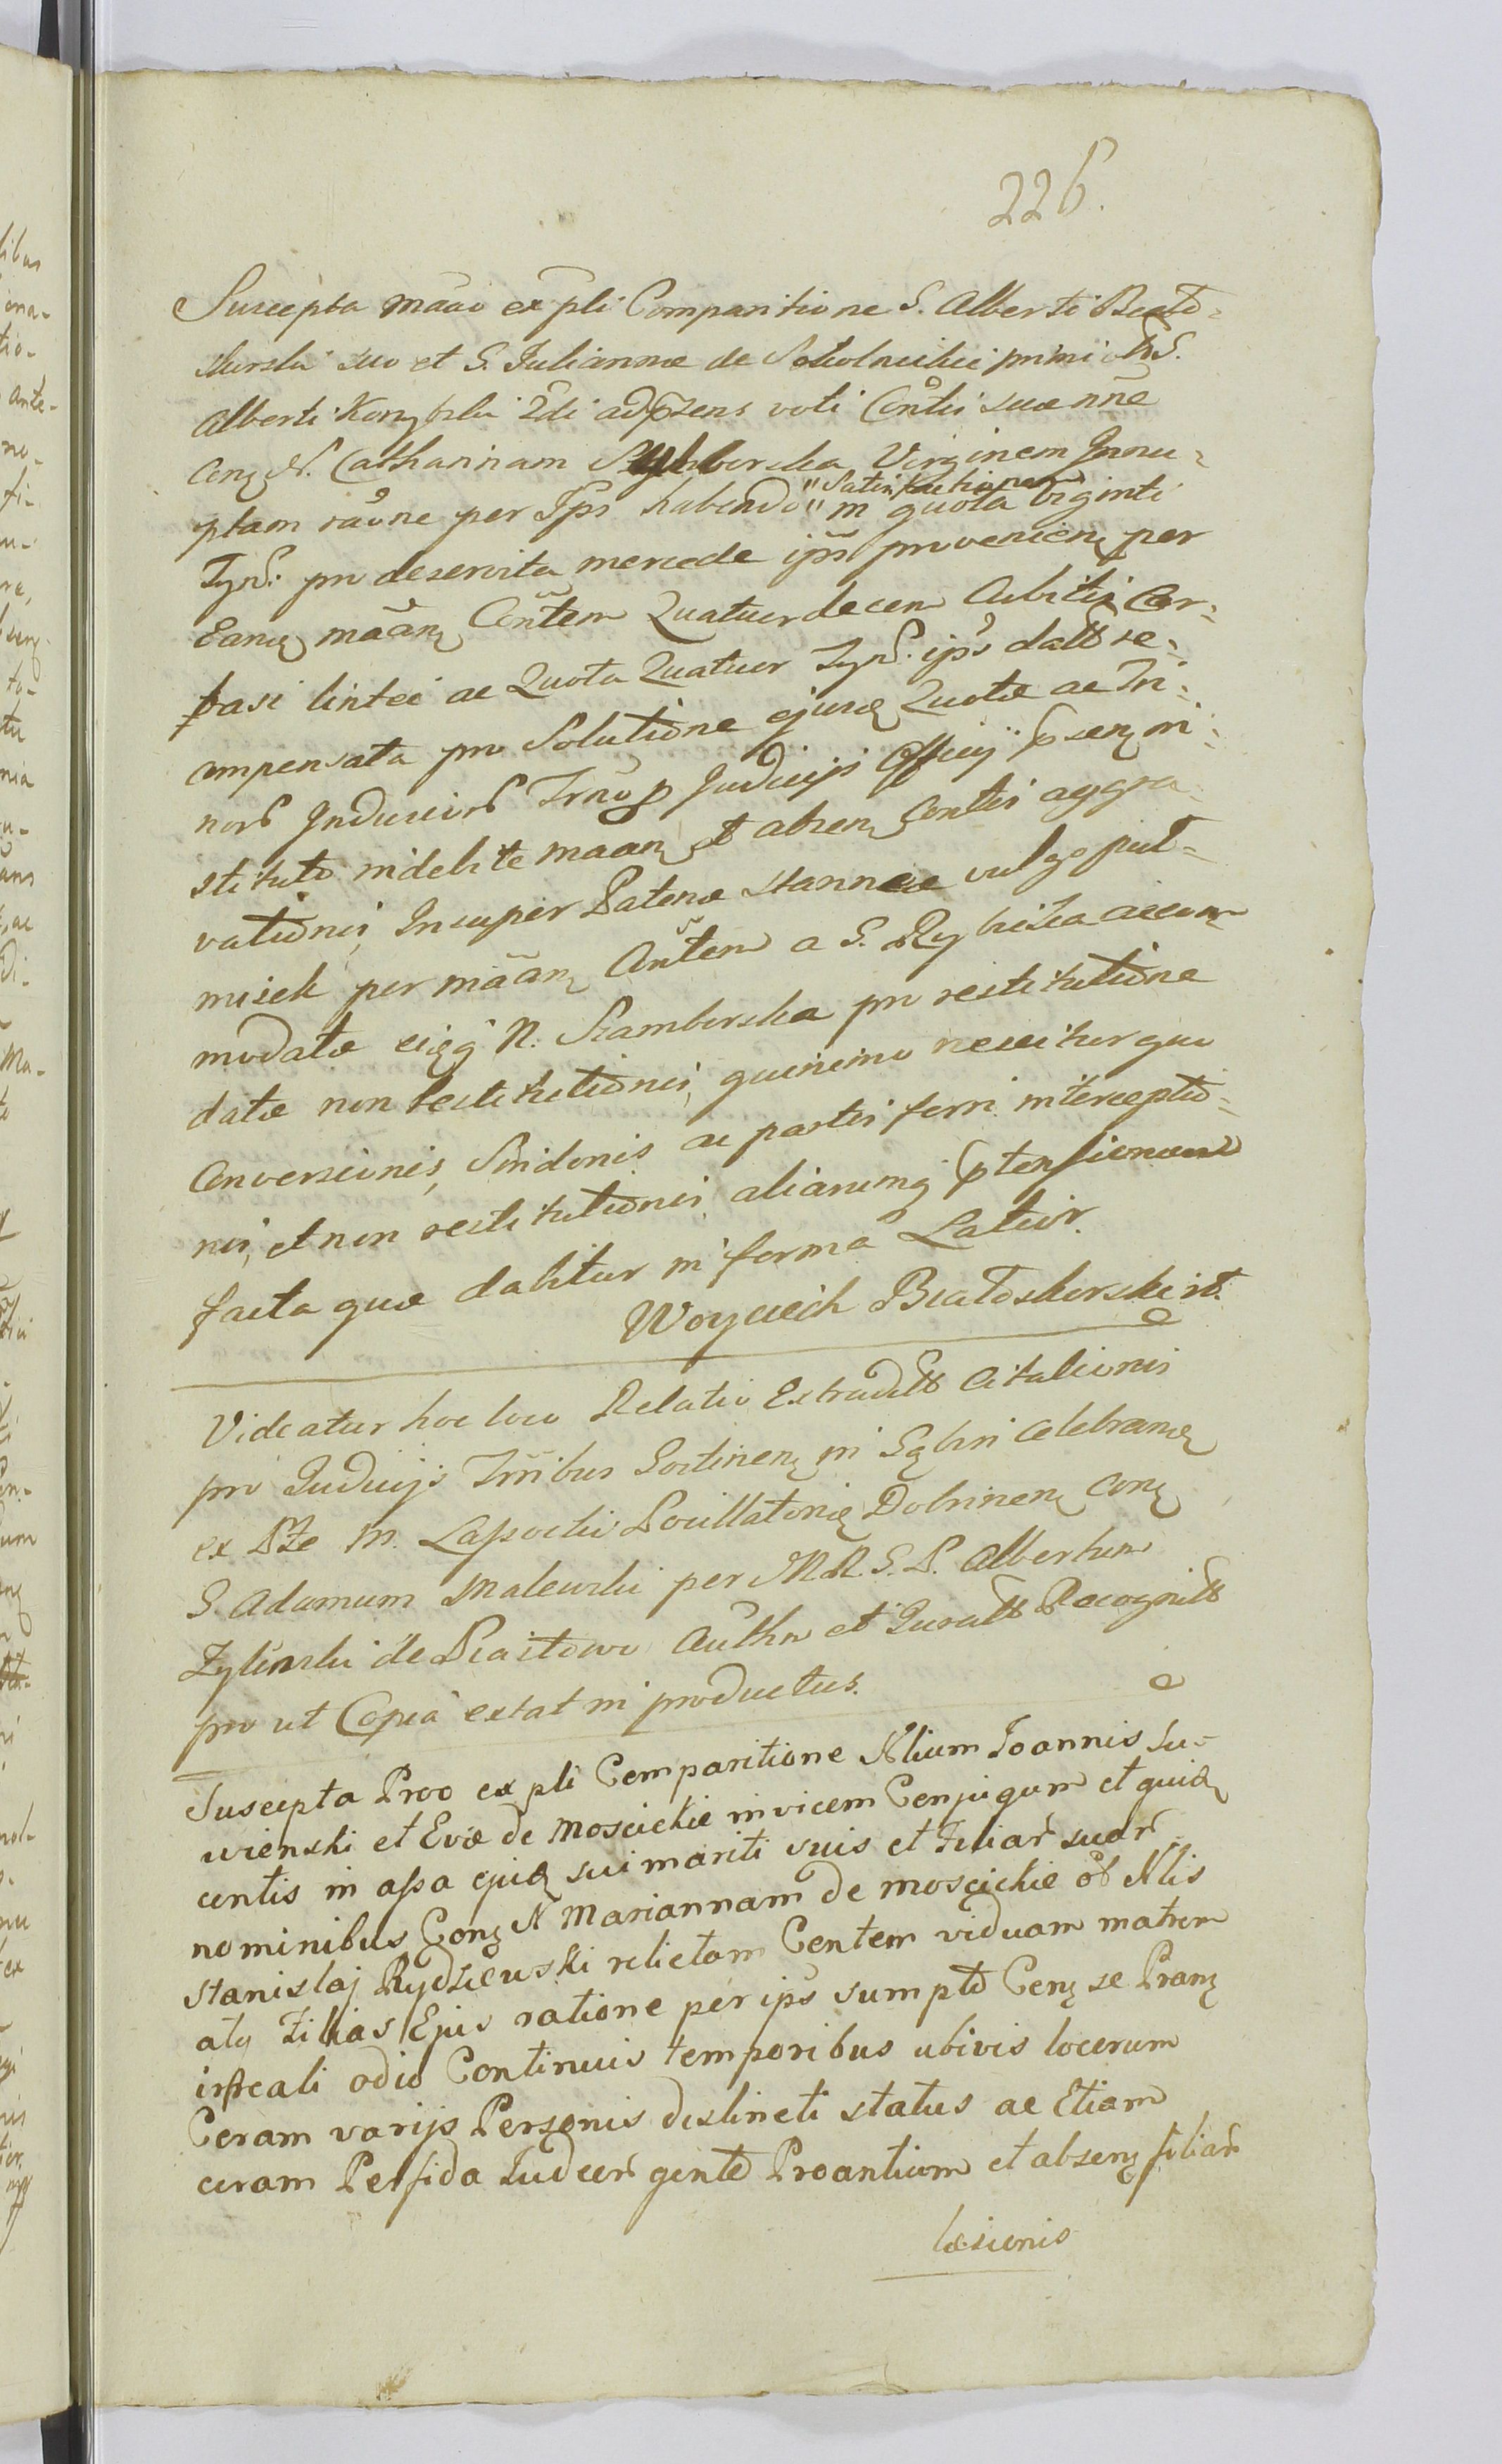 226.
Suscepta Mãao ex pli Comparitione G. Alberti Biało=
skorski suo et G. Juliannæ de Sokolnickie primi olim G.
Alberti Konybski 2di adpräsens voti Contis suæ nñe
Conq N. Catharinam Szamborska Virginem Innu=
ptam rãone per Ips habendo " Satisfactione " in quota Viginti
Tynf: pro deservita mercede ips provenien per
Eanq mãanq Contem Quatuordecem Cubitis Car=
basi lintei ac Quota Quatuor Tynf. ips datt re=
compensata pro Solutione ejusq Quotæ ac Tri=
nors Induciors Judicijs Officij in=
stituto indebite maanq et absenq Contis aggra=
vationis, Insuper Patenæ stanneæ vulgo pul=
misek per mãanq Contem a G. Rybicka accom=
modatæ eiq N. Szamborska pro restitutione
datæ non restitutionis, quinimo nescitur quo
Conversionis, Sindonis ac partis ferri interceptio=
nis, et non restitutionis aliarumq ptensionum
facta quæ dabitur in forma Latior.
Woyciech Białoskorski mp.
Videatur hoc loco Relatio Extraditt Citationis
pro Judicijs Trribus Gostinenq in Gąbin celebranq
ex Pte M. Lassocki Pocillatoris Dobrinenq Conq
G. Adamum Malewski per MR. G. P. Albertum
Zylinski de Piastowo Authn et Juratt Recognitt
pro ut Copia extat in productus.
Suscepta Proo ex pli Comparitione Nlium Joannis Su=
wienski et Evæ de Moscickie invicem Conjugum et quidq
contis in assa ejusq sui mariti suis et Filiar suar
nominibus Conq N Mariannam de Moscickie ob Nlis
Stanislaj Rydzewski relictam Contem viduam matrem
atq Filias Ejus ratione per ips sumptd Conq se Pranq
irreali odio Continuis temporibus ubivis locorum
Coram varijs Personis distincti status ac Etiam
coram Perfida Judeor gente Proantium et absenq filiar
læsionis